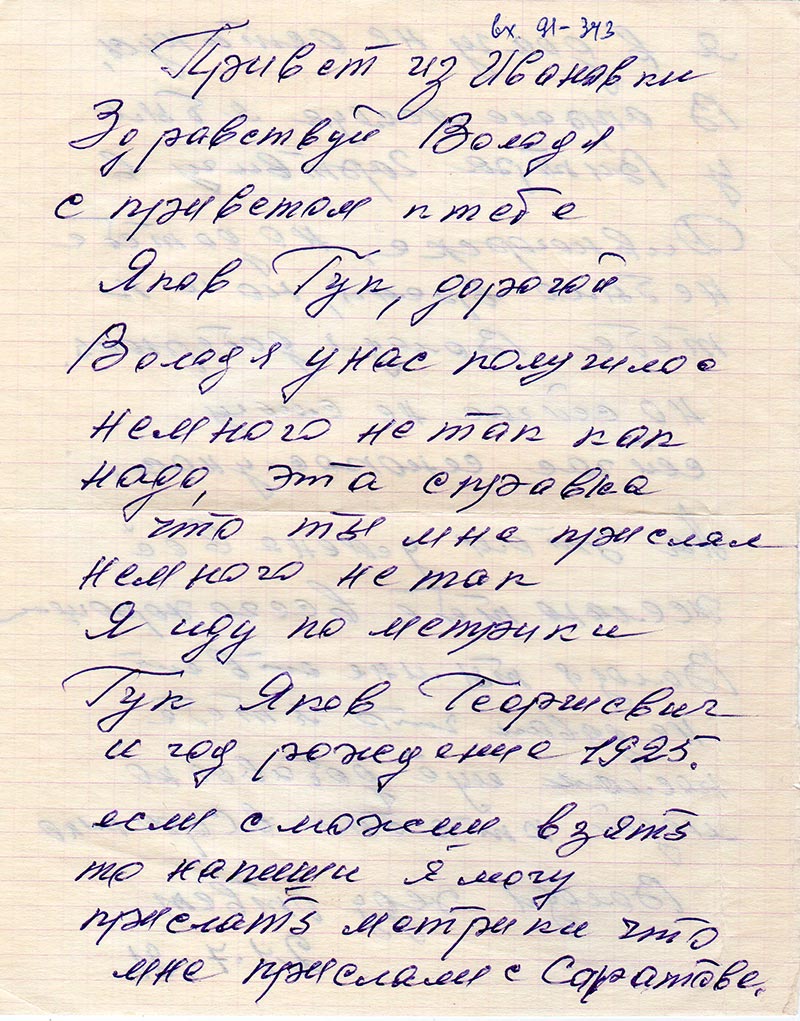 вх. 91-343
Привет из Ивановки
Здравствуй Володя
с приветом к тебе
Яков Гук, дорогой
Володя у нас получилос
немного не так как
надо, эта справка
что ты мне прислал
немного не так
Я иду по метрики
Гук Яков Георгиевич
и год рождение 1925.
если сможеш взять
то напиши я могу
прислать метрики что
мне прислали с Саратова.